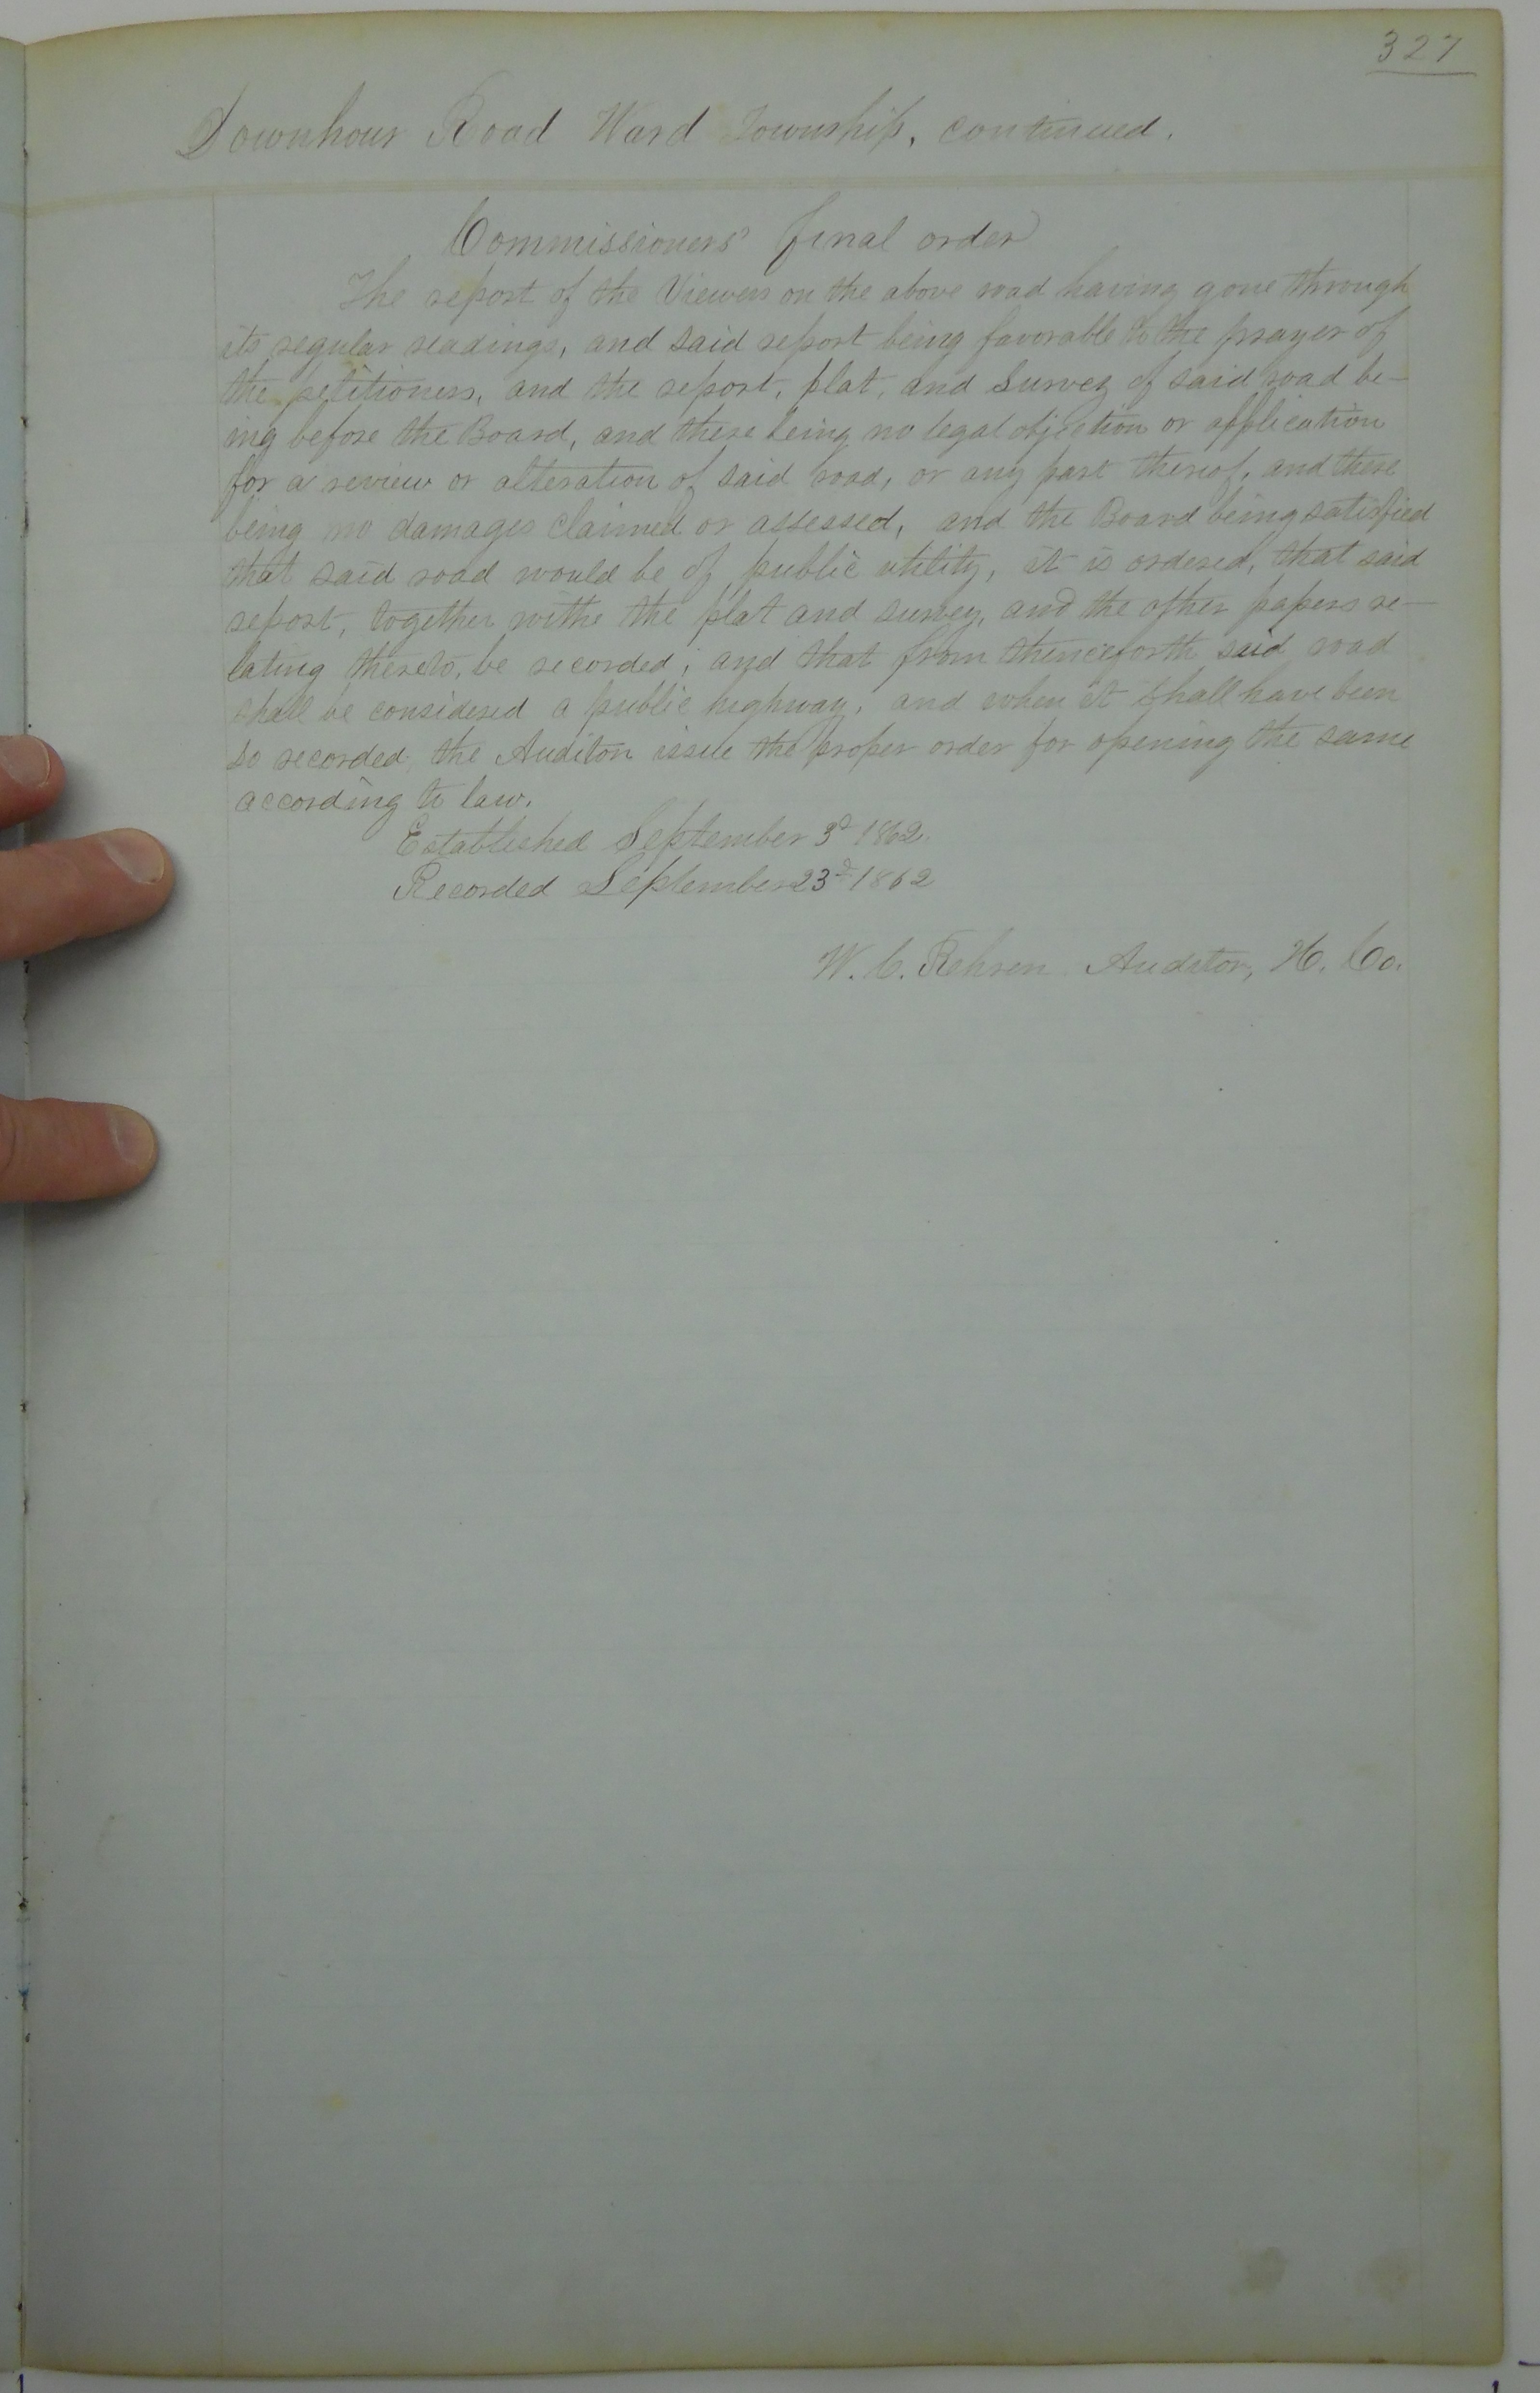 327
Downhour Road Ward Township, continued.
Commissioners' final order
The report of the Viewers on the above road having gone through
its regular readings, and said report being favorable to the prayer of
the petitioners, and the report, plat, and survey of said road be-
ing before the Board, and there being no legal objection or application
for a review or alteration of said road, or any part thereof, and there
being no damages claimed or assessed, and the Board being satisfied
that said road would be of public utility, it is ordered, that said
report, together withe the plat and survey, and the other papers re-
lating thereto, be recorded; and that from thenceforth said road
shall be considered a public highway, and when it shall have been
so recorded, the Auditor issue the proper order for opening the same
according to law.
Established September 3d 1862.
Recorded September 23d 1862
W. C. Rehren Auditor, H. Co.